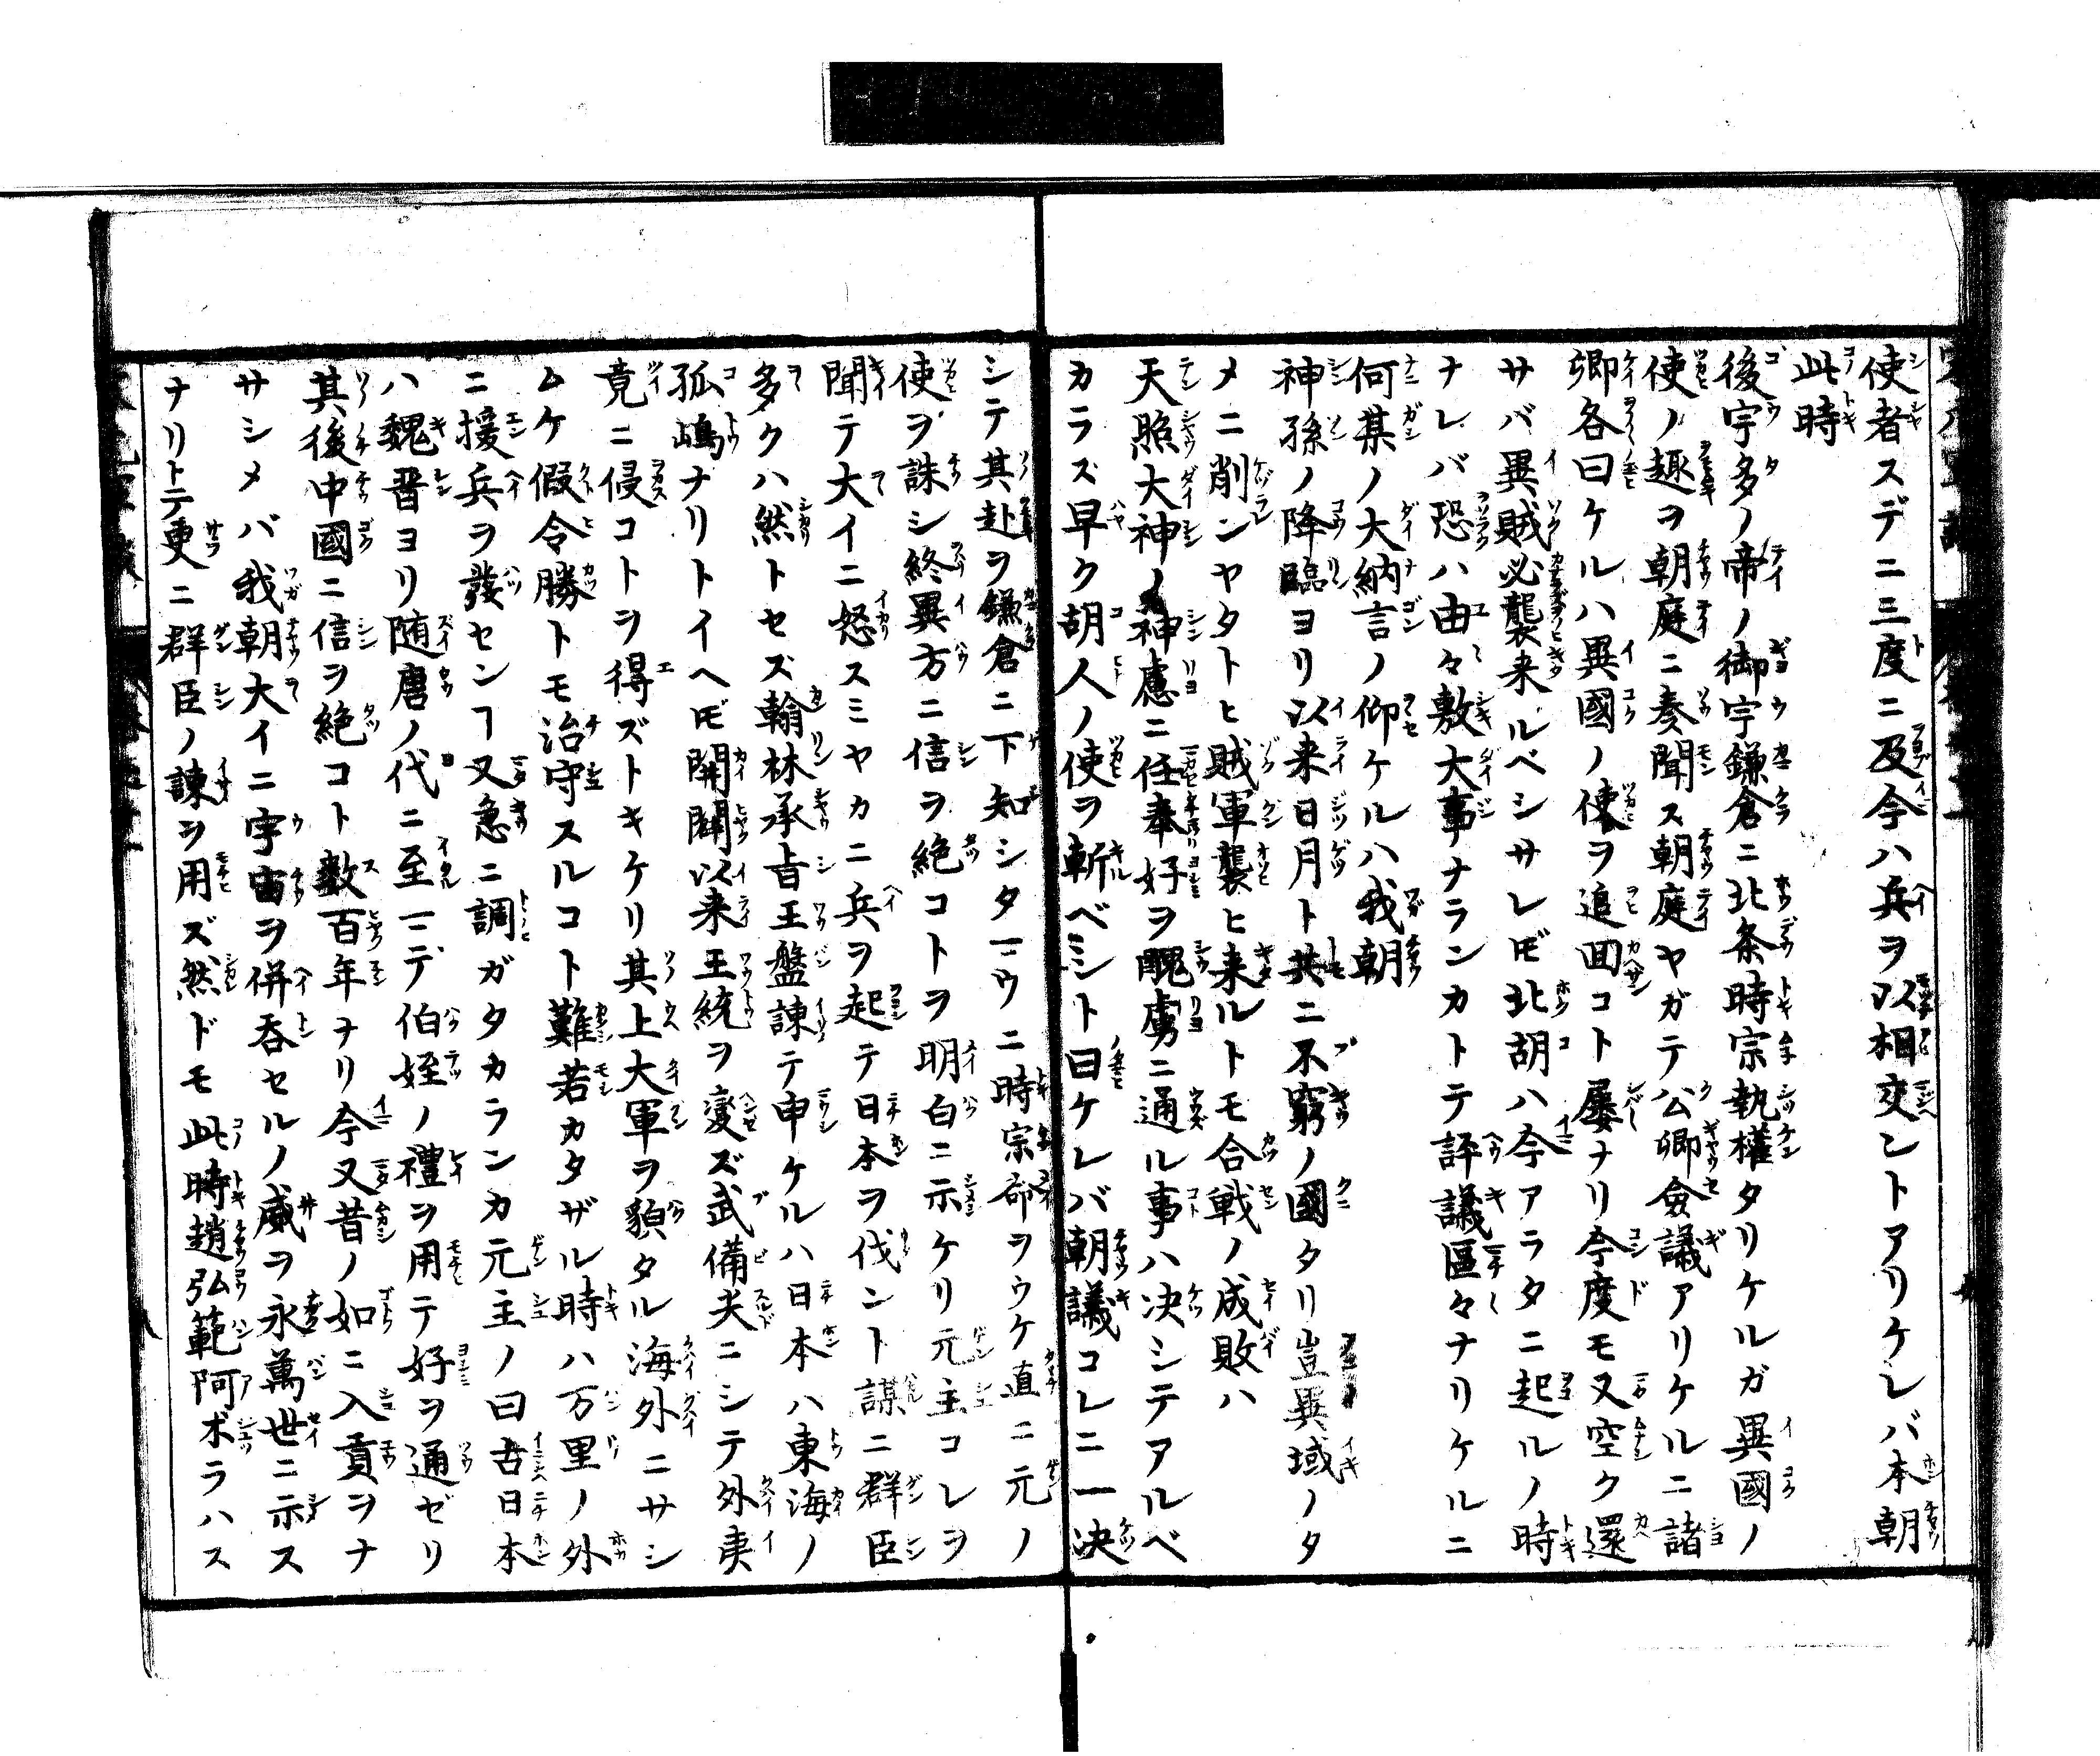 使者スデニ三度ニ及今ハ兵ヲ以相交ントアリケレバ本朝
此時
後宇多ノ帝ノ御宇鎌倉ニ北条時宗執權タリケルガ異國ノ
使ノ趣ヲ朝庭ニ奏聞ス朝庭ヤガテ公卿會議アリケルニ諸
卿各曰ケルハ異國ノ使ヲ追回コト屡ナリ今度モ又空ク還
サバ異賊必襲来ルベシサレドモ北胡ハ今アラタニ起ルノ時
ナレバ恐ハ由々敷大事ナランカトテ評議區々ナリケルニ
何某ノ大納言ノ仰ケルハ我朝
神孫ノ降臨ヨリ以来日月ト共ニ不窮ノ國タリ豈異域ノタ
メニ削ンヤタトヒ賊軍襲ヒ来ルトモ合戦ノ成敗ハ
天照大神ノ神慮ニ任奉好ヲ醜虜ニ通ル事ハ决シテアルベ
カラズ早ク胡人ノ使ヲ斬ベシト曰ケレバ朝議コレニ一决
シテ其赴ヲ鎌倉ニ下知シタマウニ時宗命ヲウケ直ニ元ノ
使ヲ誅シ終異方ニ信ヲ絶コトヲ明白ニ示ケリ元主コレヲ
聞テ大イニ怒スミヤカニ兵ヲ起テ日本ヲ伐ント謀ニ群臣
多クハ然トセズ翰林承旨王盤諌テ申ケルハ日本ハ東海ノ
孤嶋ナリトイヘドモ開闢以来王統ヲ変ズ武備尖ニシテ外夷
竟ニ侵コトヲ得ズトキケリ其上大軍ヲ貌タル海外ニサシ
ムケ假令勝トモ治守スルコト難若カタザル時ハ万里ノ外
ニ援兵ヲ發センヿ又急ニ調ガタカランカ元主ノ曰古日本
ハ魏晋ヨリ随唐ノ代ニ至マデ伯姪ノ禮ヲ用テ好ヲ通ゼリ
其後中國ニ信ヲ絶コト数百年ナリ今又昔ノ如ニ入貢ヲナ
サシメバ我朝大イニ宇宙ヲ併呑セルノ威ヲ永萬世ニ示ス
ナリトテ更ニ群臣ノ諌ヲ用ズ然ドモ此時趙弘範阿ボラハス